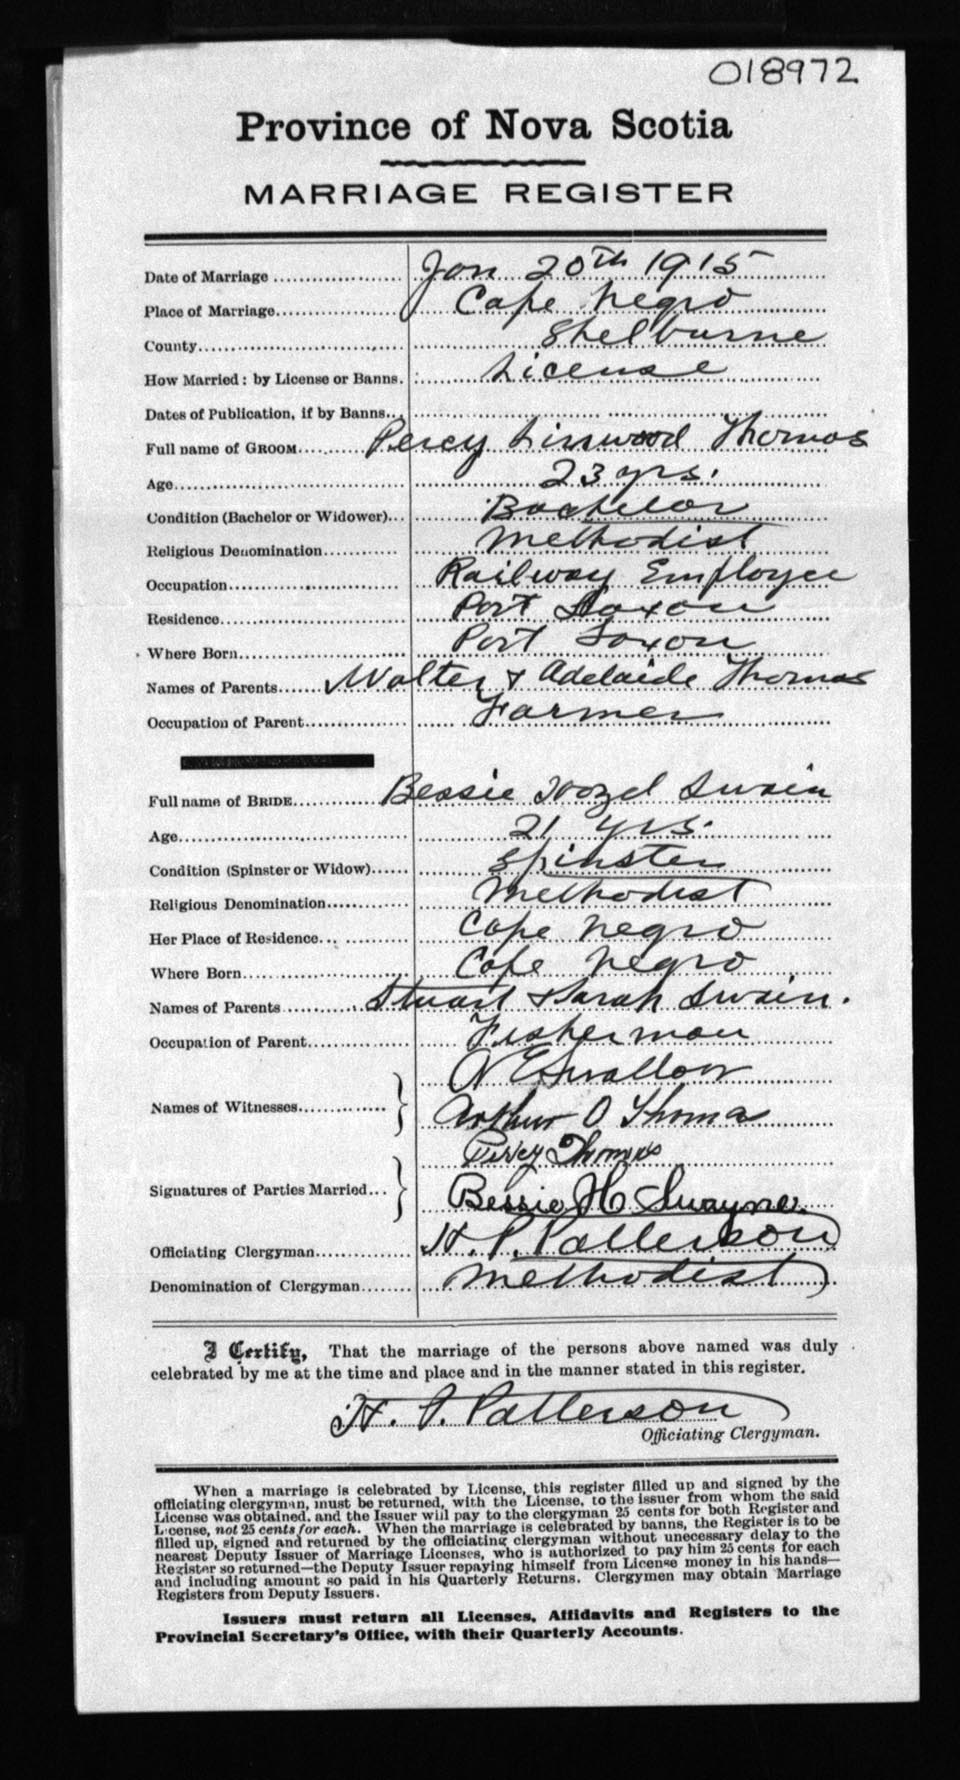 018972
Province of Nova Scotia
MARRIAGE REGISTER
Date of Marriage Jan 20th 1915
Place of Marriage Cape Negro
County Shelburne
How Married: by License or Banns. License
Dates of Publication, if by Banns
Full name of GROOM Percy Linwood Thomas
Age 23 yrs.
Condition (Bachelor or Widower) Bachelor
Religious Denomination Methodist
Occupation Railway Employee
Residence Port Saxon
Where Born Port Saxon
Names of Parents Walter & Adelaide Thomas
Occupation of Parent Farmer
Full name of BRIDE Bessie Swain
Age 21 yrs.
Condition (Spinster or Widow) Spinster
Religious Denomination Methodist
Her Place of Residence Cape Negro
Where Born Cape Negro
Names of Parents Stuart & Sarah Swain.
Occupation of Parent Fisherman
N E Swallow
Names of Witnesses
Arthur O Thomas
Percy Thomas
Signatures of Parties Married
Bessie H Swayne.
Officiating Clergyman H. P. Patterson
Denomination of Clergyman Methodist
I Certify, That the marriage of the persons above named was duly
celebrated by me at the time and place and in the manner stated in this register.
H. P. Patterson
Officiating Clergyman.
When a marriage is celebrated by License, this register filled up and signed by the
officiating clergyman, must be returned, with the License, to the issuer from whom the said
License was obtained. and the Issuer will pay to the clergyman 25 cents for both Register and
License, not 25 cents for each. When the marriage is celebrated by banns, the Register is to be
filled up, signed and returned by the officiating clergyman without unecessary delay to the
nearest Deputy Issuer of Marriage Licenses, who is authorized to pay him 25 cents for each
Register so returned—the Deputy Issuer repaying himself from License money in his hands—
and including amount so paid in his Quarterly Returns. Clergymen may obtain Marriage
Registers from Deputy Issuers.
Issuers must return all Licenses, Affidavits and Registers to the
Provincial Secretary's Office, with their Quarterly Accounts.